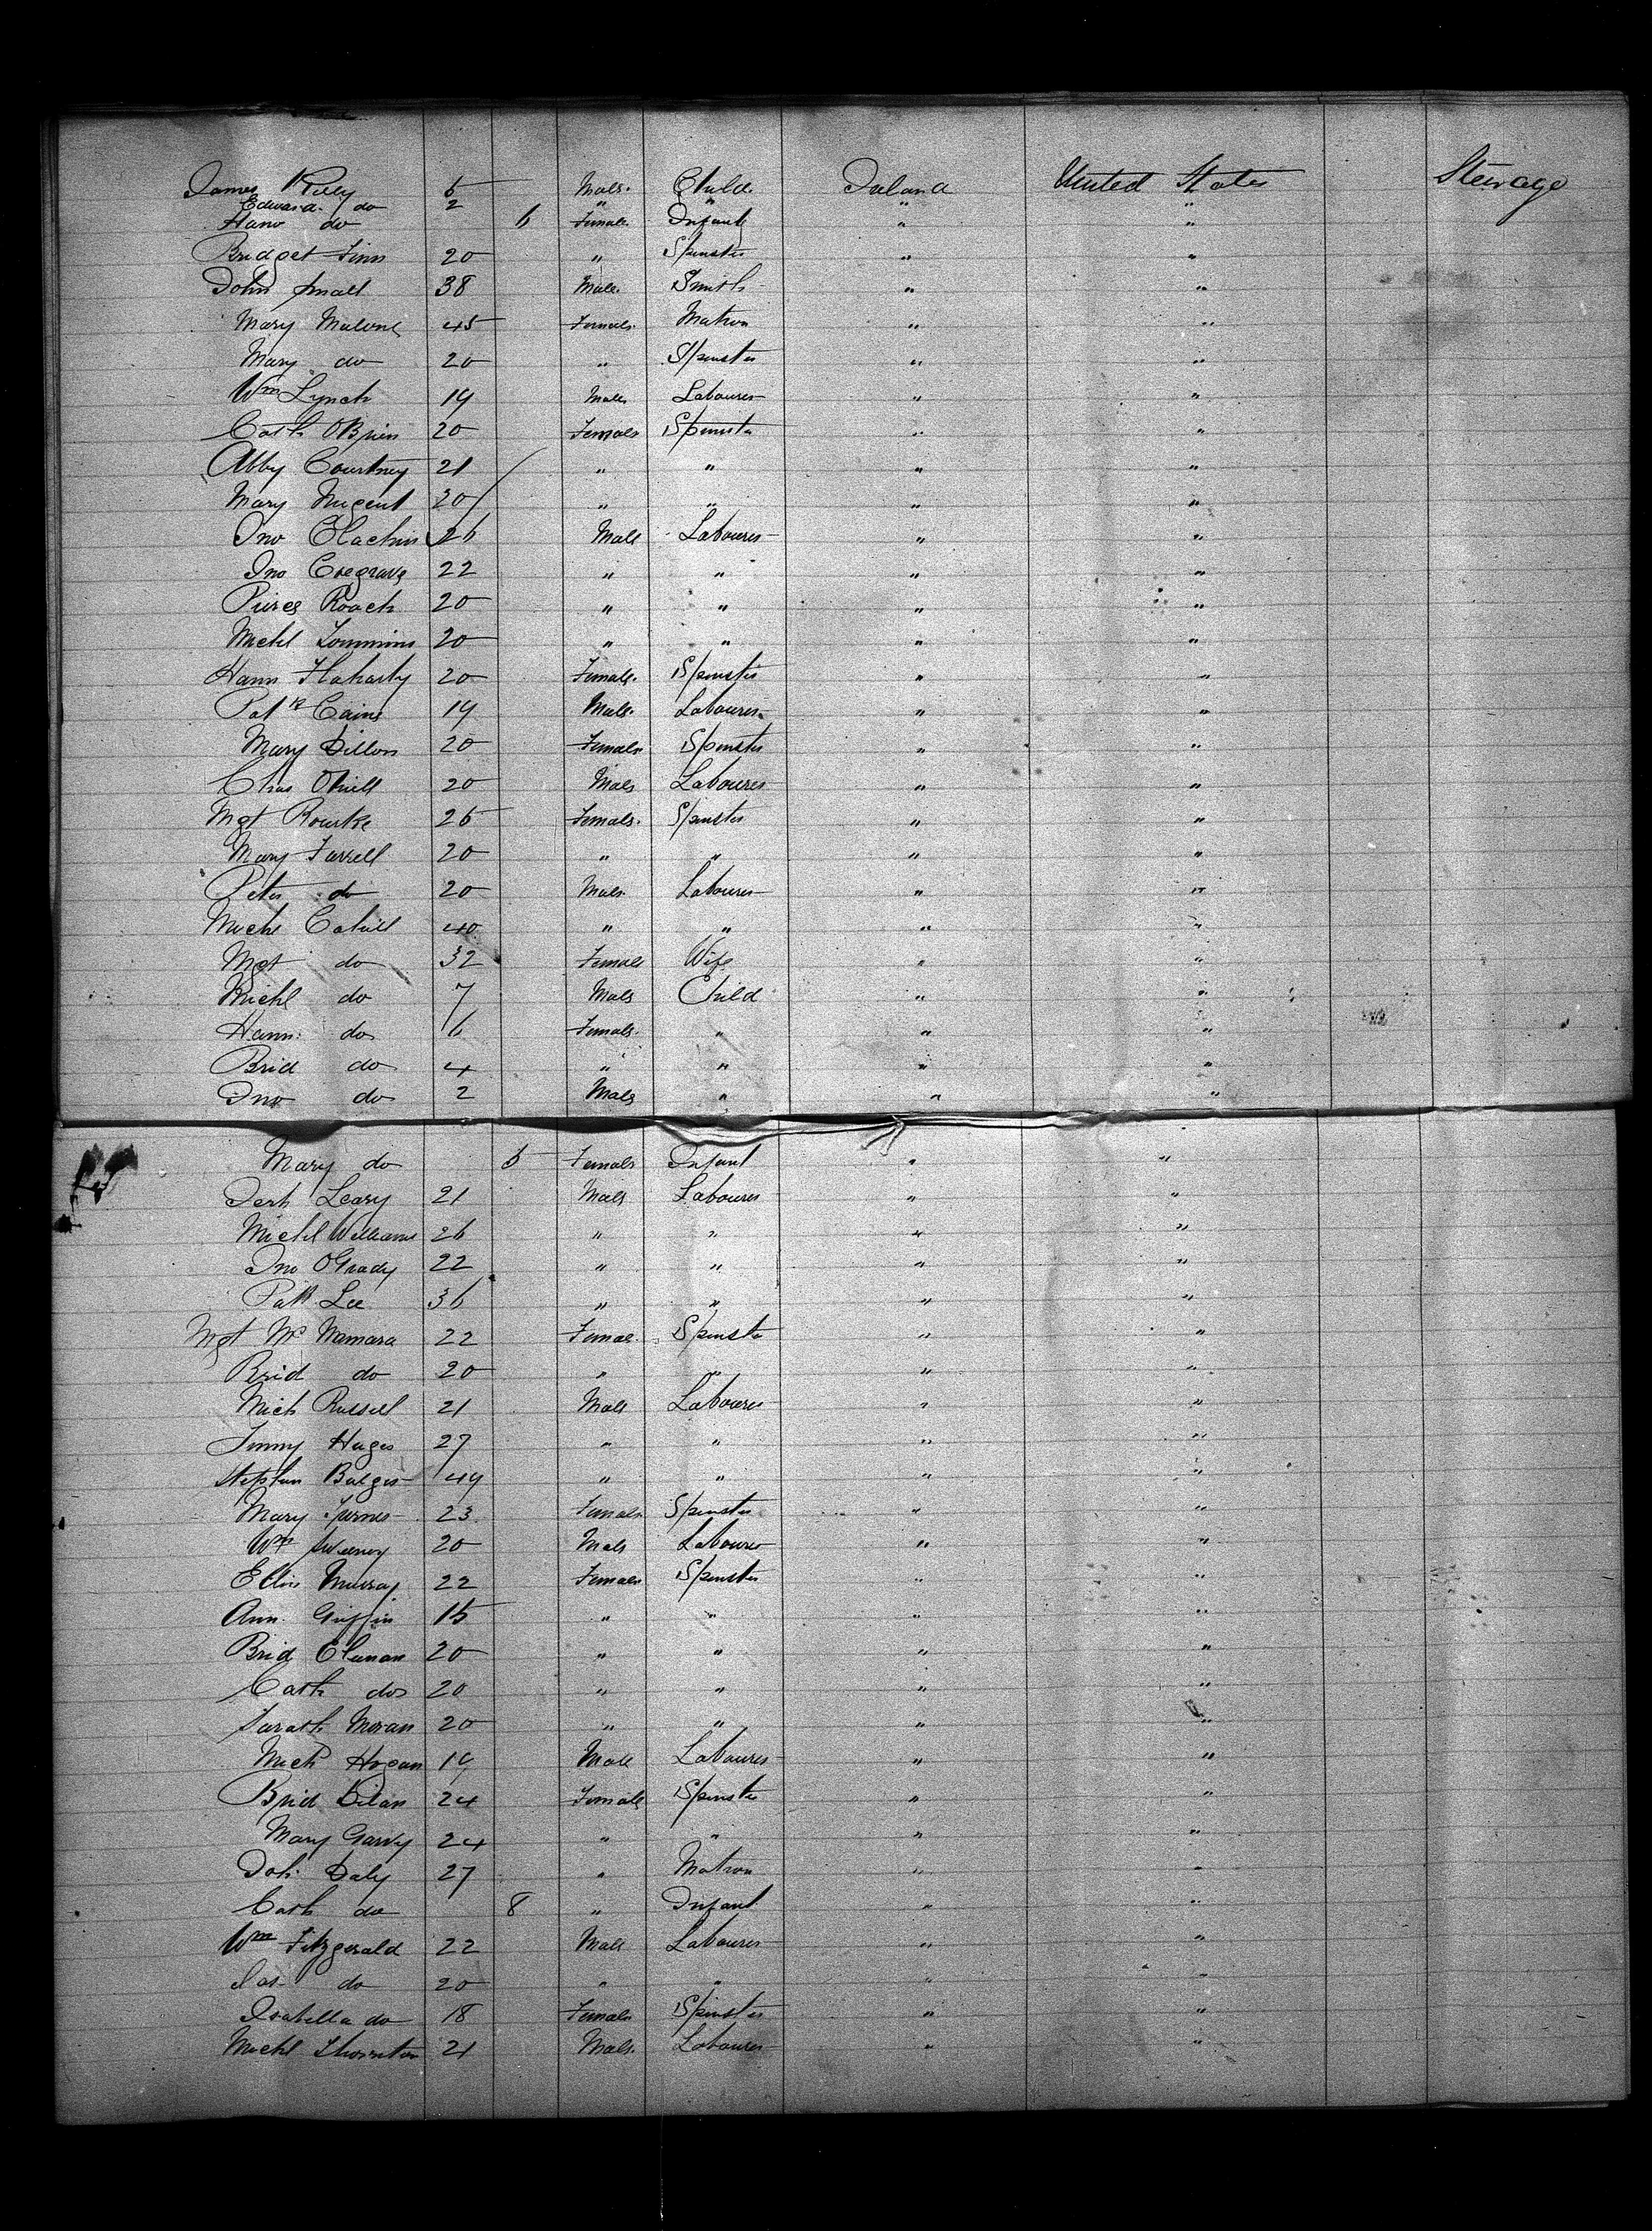 James Kiley 5 Male Child Ireland United States Steerage
Edward do 2 " " " "
Hano do 6 Female Infant " "
Bridget Finn 20 " Spinster " "
John Small 38 Male Smith " "
Mary Malone 45 Female Matron " "
Mary do 20 " Spinster " "
Wm Lynch 19 Male Labourer " "
Cath OBrien 20 Female Spinster " "
Abby Courtney 21 " " " "
Mary Nugent 20 " " " "
Jno 26 Male Labourer " "
Jno Cosgrave 22 " " " "
Pierce Roach 20 " " " "
Michl 20 " " " "
Hann Flaharty 20 Female Spinster " "
Patk Cains 19 Male Labourer " "
Mary Dillon 20 Female Spinster " "
Chas ONeill 20 Male Labourer " "
Mgt Rourke 25 Female Spinster " "
Mary Farrell 20 " " " "
Peter do 20 Male Labourer " "
Michl Cahill 40 " " " "
Mgt do 32 Female Wife " "
Michl do 7 Male Child " "
Hann do 6 Female " " "
Brid do 4 " " " "
Jno do 2 Male " " "
Mary do 5 Female Infant " "
Jerh Leary 21 Male Labourer " "
Michl Williams 26 " " " "
Jno OGrady 22 " " " "
Patk Lee 36 " " " "
Mgt McNamara 22 Female Spinster " "
Brid do 20 " " " "
Mich Russell 21 Male Labourer " "
Hages 27 " " " "
Stephen 49 " " " "
Mary 23 Female Spinster " "
Wm Sweeney 20 Male Labourer " "
Ellin Murray 22 Female Spinster " "
Ann Griffin 15 " " " "
Brid Clunan 20 " " " "
Cath do 20 " " " "
Sarah Moran 20 " " " "
Mich Hogan 19 Male Labourer " "
Brid Dilan 24 Female Spinster " "
Mary Garvy 24 " " " "
Joh Daly 27 " Matron " "
Cath do 8 " Infant " "
Wm Fitzgerald 22 Male Labourer " "
Jas do 20 " " " "
Isabella do 18 Female Spinster " "
Michl Thornton 21 Male Labourer " "